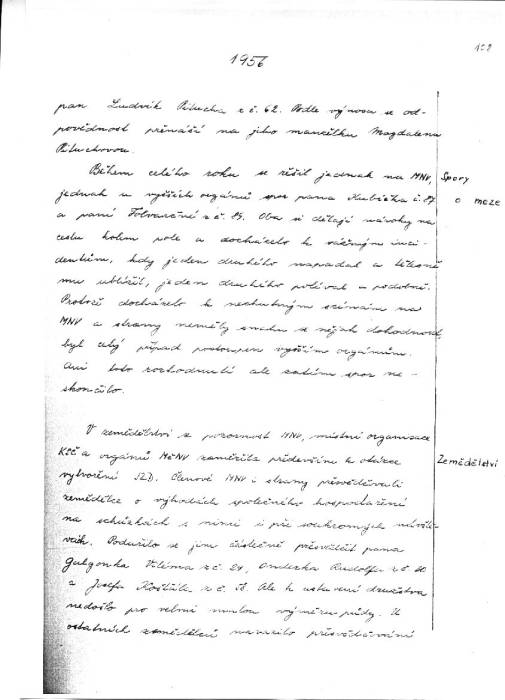 1956
pan Ludvík Pilucha z č. 62. Podle výnosu se od-
povědnost přenáší na jeho manželku Magdalenu
Piluchovou.
Během celého roku se řešil jednak na MNV,
Spory
jednak u vyšších orgánů spor pana Kubíčka č. 87
o meze
a paní Tobrarčné z č. 85. Oba si dělají nároky na
cestu kolem pole a docházelo k vážným inci-
dentům, kdy jeden druhého napadal a tělesně
mu ublížil, jeden druhého políval a podobně.
Protože docházelo k nechutným scénám na
MNV a strany neměly snahu se nějak dohodnout,
byl celý případ postoupen vyšším orgánům.
Ani toto rozhodnutí ale zatím spor ne-
skončilo.
V zemědělství se pozornost MNV, místní organisace
KSČ a orgánů MěNV zaměřila především k otázce
Zemědělství
vytvoření JZD. Členové MNV i strany přesvědčovali
zemědělce o výhodách společného hospodaření
na schůzkách s nimi i při soukromých návště-
vách. Podařilo se jim částečně přesvědčit pana
Viléma z č. 24, Onderka Rudolfa z č. 10
a Josefa z č. 18. Ale k ustavení družstva
nedošlo pro velmi malou výměru půdy. U
ostatních zemědělců naráželo přesvědčování